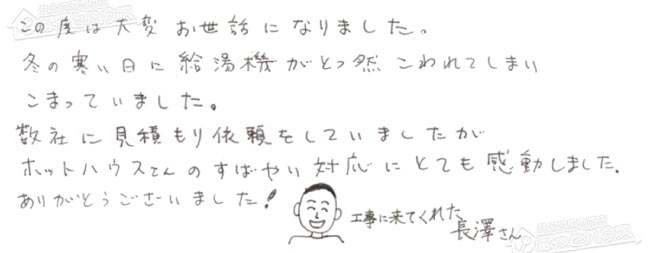 この度は大変お世話になりました。
冬の寒い日に給湯機がとつ然こわれてしまい
こまっていました。
数社に見積もり依頼をしていましたが
ホットハウスさんのすばやい対応にとても感動しました.
ありがとうございました!
工事に来てくれた
長澤さん